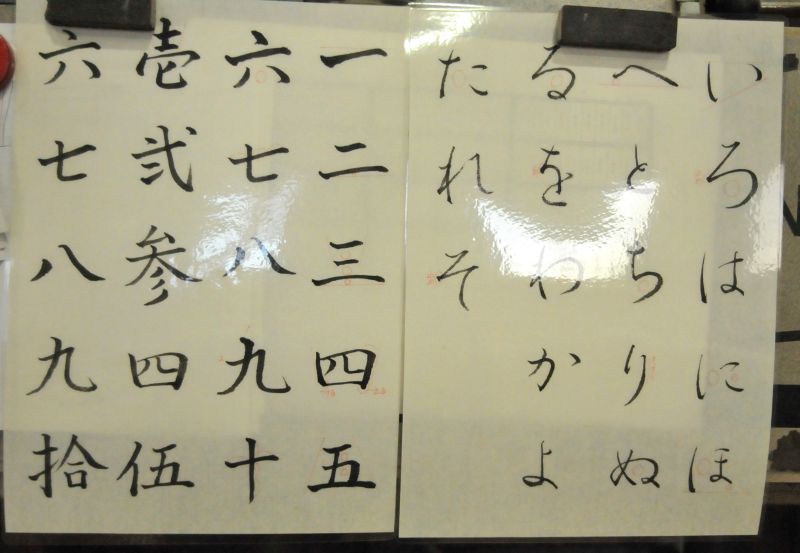 いろはにほ
へとちりぬ
るをわかよ
たれそ
一二三四五
六七八九十
壱弐参四伍
六七八九拾